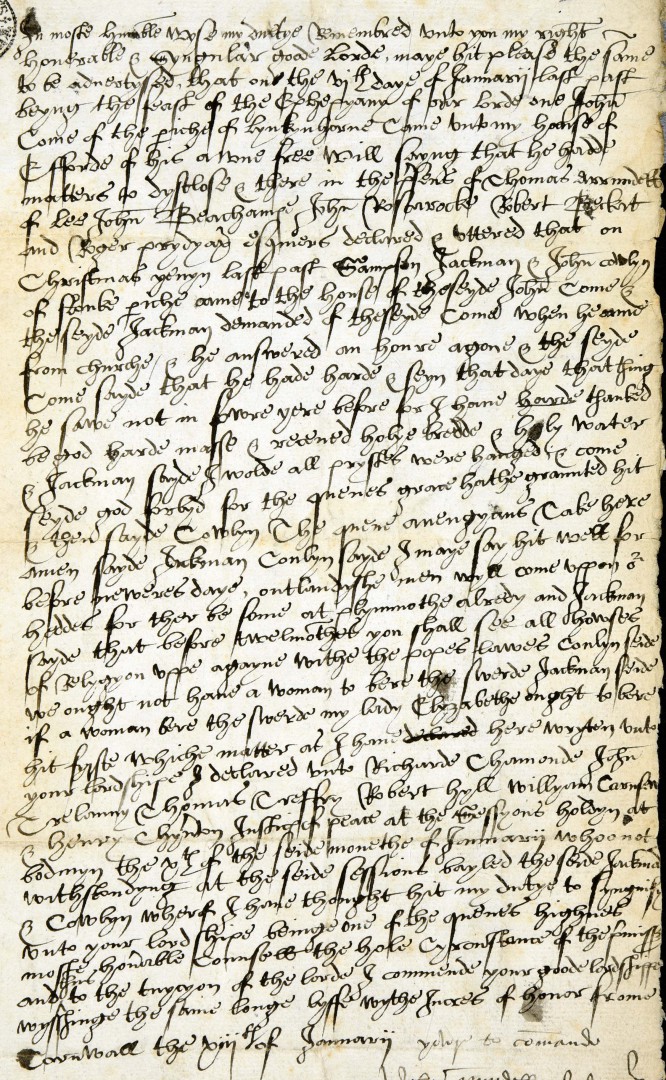 In moste humble wyse my dutye Remembred unto you my right
honerable & Syngular goode Lorde, maye hit please the same
to be advertyssed, that on the vjth daye of Januarij last past
beyng the feast of the Ephepyany of our Lorde one John
Come of the piche of Lynkynhorne Came unto my house of
Efforde of his awne free will sayng that he hadde
matters to dysclose & there in the psens of Thomas arrundell
of Lee John Beachampe John Rostarocke Robert Beckett
and Roger prydyax esquiers declared & uttered that on
Christmas yevyn last past Sampson Jackman & John cowlyn
of stoke piche came to the house of theseyde John Come &
theseyde Jackman demanded of theseyde Come when he came
from churche, & he answered an houre agone & the seyde
Come sayde that he hade harde & seyn that daye that thing
he sawe not in fowre yere before for I have harde thanked
be god harde masse & receved holye bredde & holy water
& Jackman seyde I wolde all prystes were hanged, & come
seyde god forbyd for the quenes grace hathe graunted hit
& then sayde Cowlyn The quene avengyans Take here
amen sayde Jackman Conlyn sayde I maye say hit well for
before neweres daye, outlandyshe men wyll come uppon or
heddes for ther be some at plymmothe alredy and Jackman
sayde that before twelmothes you shall see all howses
of Relygyon uppe agayne withe the popes lawes Conlyn seide
we ought not have a woman to bere the swerde Jackman seide
if a woman bere the swerde my lady Elyzabethe ought to bere
hit fyrste whiche matter as I have declared here wryten unto
your lordshipe I declared unto Richarde Chamonde John
Trelawny Thomas Treffry Robert hyll willyam Carnsew
& henry Chyndon Justics of peace at the Sessyons holdyn at
bodmyn the xth of the seide monethe of Januarij whoo not
withstondyng at the seide sessions bayled the seide Jackman
& Cowlyn wherof I have thought hit my dutye to syngnify
unto your lordshipe beinge one of the quenes highnes
moste honorable Counsell the hole cyrcunstance of the
and to the tuycyon of the lorde I commende your goode lordshippe
wysshinge the same longe lyffe wythe Incres of honor frome
Cornwall the xiijth of Januarij your to comande